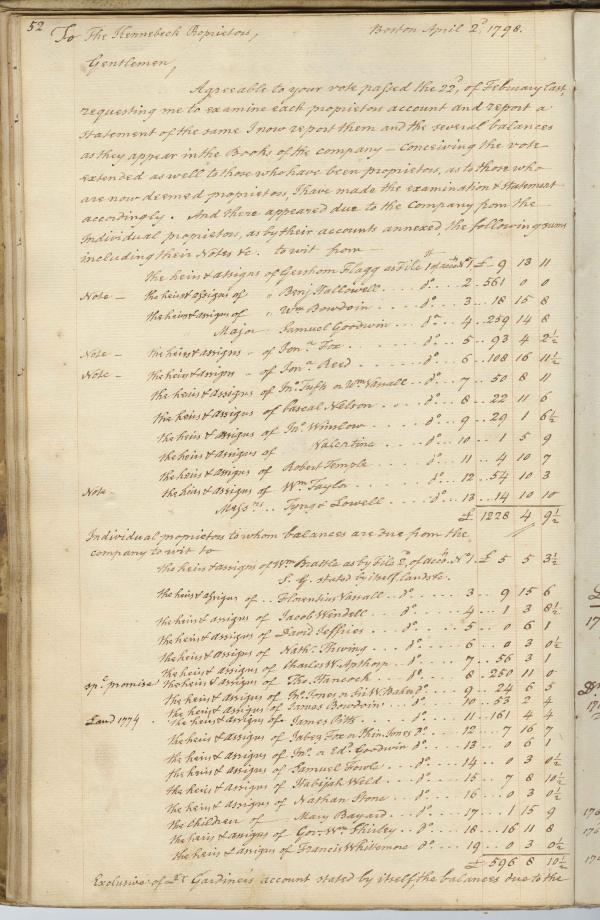 52 To The Kennebeck Proprietors, Boston April 2d, 1798.
Gentlemen,
Agreeable to your vote passed the 22d, of February last,
requesting me to examine each proprietors account and report a
statement of the same I now report them and the several balances
as they appear in the Books of the company – conceiving the vote
extended as well to those who have been proprietors, as to those who
are now deemed proprietors, I have made the examination & statement
accordingly. And there appeared due to the Company from the
Individual proprietors, as by their accounts annexed, the following sums
including their Notes &c. to wit from
the heirs & assigns of Gershom Flagg as File 1 of acco. No. 1 £ 9 13 11
Note – the heirs & assigns of " Benj Hallowell . . do . . . 2 . 561 0 0
the heirs & assigns of " Wm Bowdoin . . . do . . . 3 . . 18 15 8
Major Samuel Goodwin . . . do . . . 4 . . 259 14 8
Note – the heirs & assigns – of Jona Fox . . . . do . . . 5 . . 93 4 2½
Note – the heirs & assigns – of Jona Reed . . . . do . . . 6 . . 108 16 11½
the heirs & assigns of Jno. Tufts or Wm Vassall . . do . . 7 . . 50 8 11
the heirs & assigns of Pascal Nelson . . . do . . . 8 . . 22 11 6
the heirs & assigns of Jno. Winslow . . . . do . . . 9 . . 29 1 6½
the heirs & assigns of Valentine . . do . . . 10 . . 1 5 9
the heirs & assigns of Robert Temple . . . . do . . . 11 . . 4 10 7
Note the heirs & assigns of Wm Taylor . . . . do . . . 12 . . 54 10 3
Messrs. Tyng & Lowell . . . . do . . . 13 . . 14 10 10
£ 1228 4 9½
Individual proprietors to whom balances are due from the
company to wit to
the heirs & assigns of Wm Brattle as by File 2d, of acco. No. 1. £ 5 5 3½
S. G. stated by itself, lands &c.
the heirs & assigns of . . Florentius Vassall . . . do . . . 3 . . 9 15 6
the heirs & assigns of Jacob Wendell . . . do . . . 4 . . 1 3 8½
the heirs & assigns of David Jeffries . . . . do . . . 5 . . 0 6 1
the heirs & assigns of Nathl. Thwing . . . do . . . 6 . . 0 3 0½
the heirs & assigns of Charles W. Apthorp . . do . . 7 . . 56 3 1
spc. promise the heirs & assigns of Tho. Hancock . . . do . . 8 . . 250 11 0
the heirs & assigns of Jno. Jones or Sr. W. Baker do . . 9 . . 24 6 5
the heirs & assigns of James Bowdoin . . . do . . . 10 . . 53 2 4
Land 1774 . the heirs & assigns of James Pitts . . . . do . . . 11 . . 161 4 4
the heirs & assigns of Jabez Fox or Thos. Jones do . . 12 . . 7 16 7
the heirs & assigns of Jno. or Edd. Goodwin do . . 13 . . 0 6 1
the heirs & assigns of Samuel Fowle . . . do . . . 14 . . 0 3 0½
the heirs & assigns of Habijah Weld . . . do . . . 15 . . 7 8 10½
the heirs & assigns of Nathan Stone . . . do . . . 16 . . 0 3 0½
the children of Mary Bayard . . . . do . . . 17 . . 1 15 9
the heirs & assigns of Govr. Wm Shirley . . . do . . . 18 . . 16 11 8
the heirs & assigns of Francis Whittemore do . . . 19 . . 0 3 0½
£ 596 8 10½
Exclusive of Dr Gardiner's account stated by itself, the balances due to the